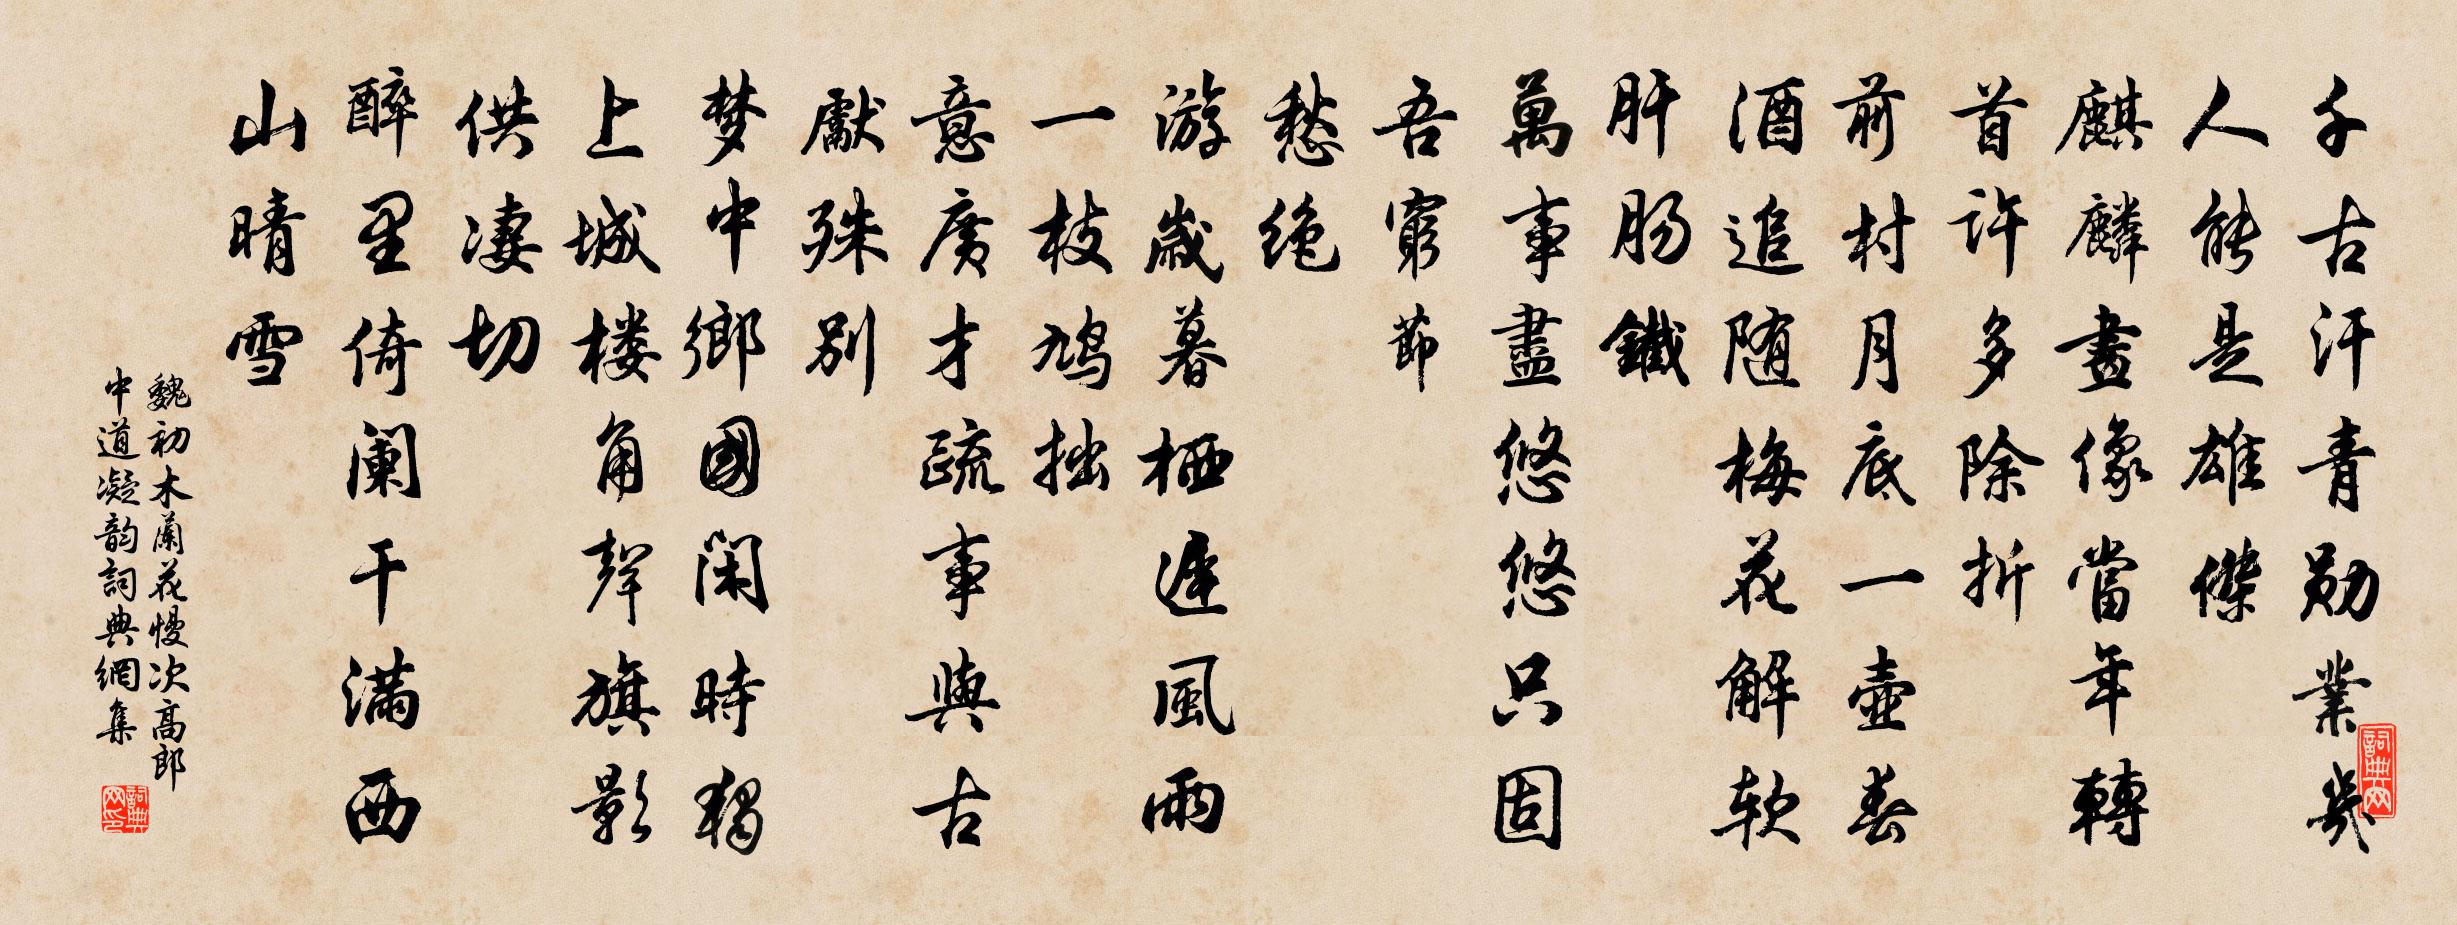 千古汗青勛業幾
人能是雄傑
麒麟畫像當年轉
首許多除折
前村月底一壺春
酒追随梅花解軟
肝肠鐵
萬事盡悠悠只固
吾窮節
愁绝
游歲暮栖遲風雨
一枝鸠拙
意廣才疏事與古
獻殊别
梦中鄉國闲時獨
上城楼角聲旗影
供凄切
醉里倚阑干满西
山晴雪
魏初木蘭花慢次高郎
中道凝韵詞典網集
詞典网
詞典网印